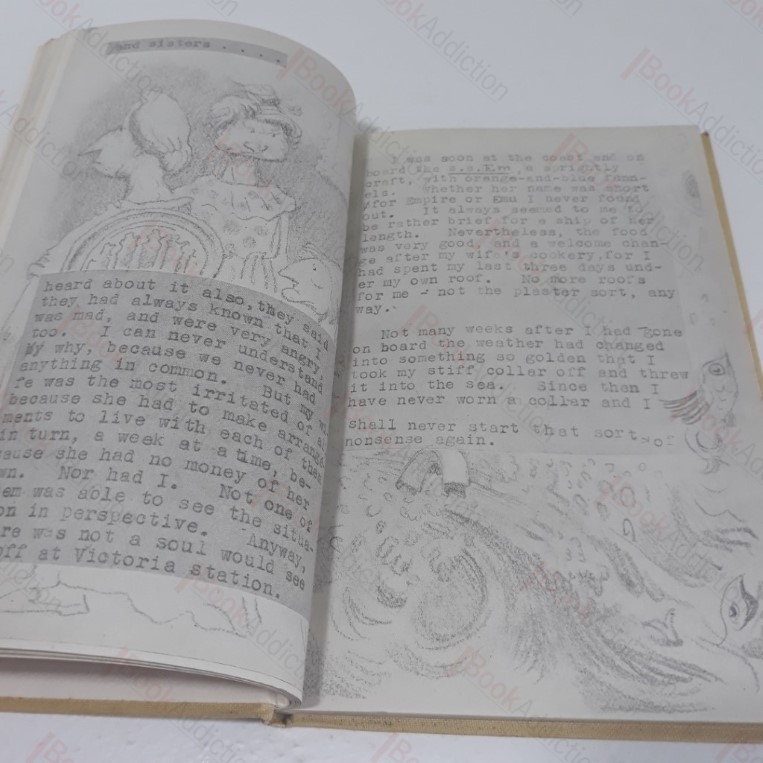 and sisters . . . .
heard about it also, they said
they had always known that I
was mad, and were very angry
too. I can never understand
why, because we never had
anything in common. But my wi
fe was the most irritated of al
because she had to make arrange
ments to live with each of them
in turn, a week at a time, be-
cause she had no money of her
wn. Nor had I. Not one of
em was able to see the situa-
on in perspective. Anyway,
re was not a soul would see
off at Victoria station.
I was soon at the coast and on
board the s.s.Em, a sprightly
craft, with orange-and-blue funn-
els. Whether her name was short
for Empire or Emu I never found
out. It always seemed to me to
be rather brief for a ship of her
length. Nevertheless, the food
was very good, and a welcome chan-
ge after my wife's cookery, for I
had spent my last three days und-
er my own roof. No more roofs
for me - not the plaster sort, any
way.
Not many weeks after I had gone
on board the weather had changed
into something so golden that I
took my stiff collar off and threw
it into the sea. Since then I
have never worn a coller and I
shall never start that sort of
nonsense again.
BookAddiction